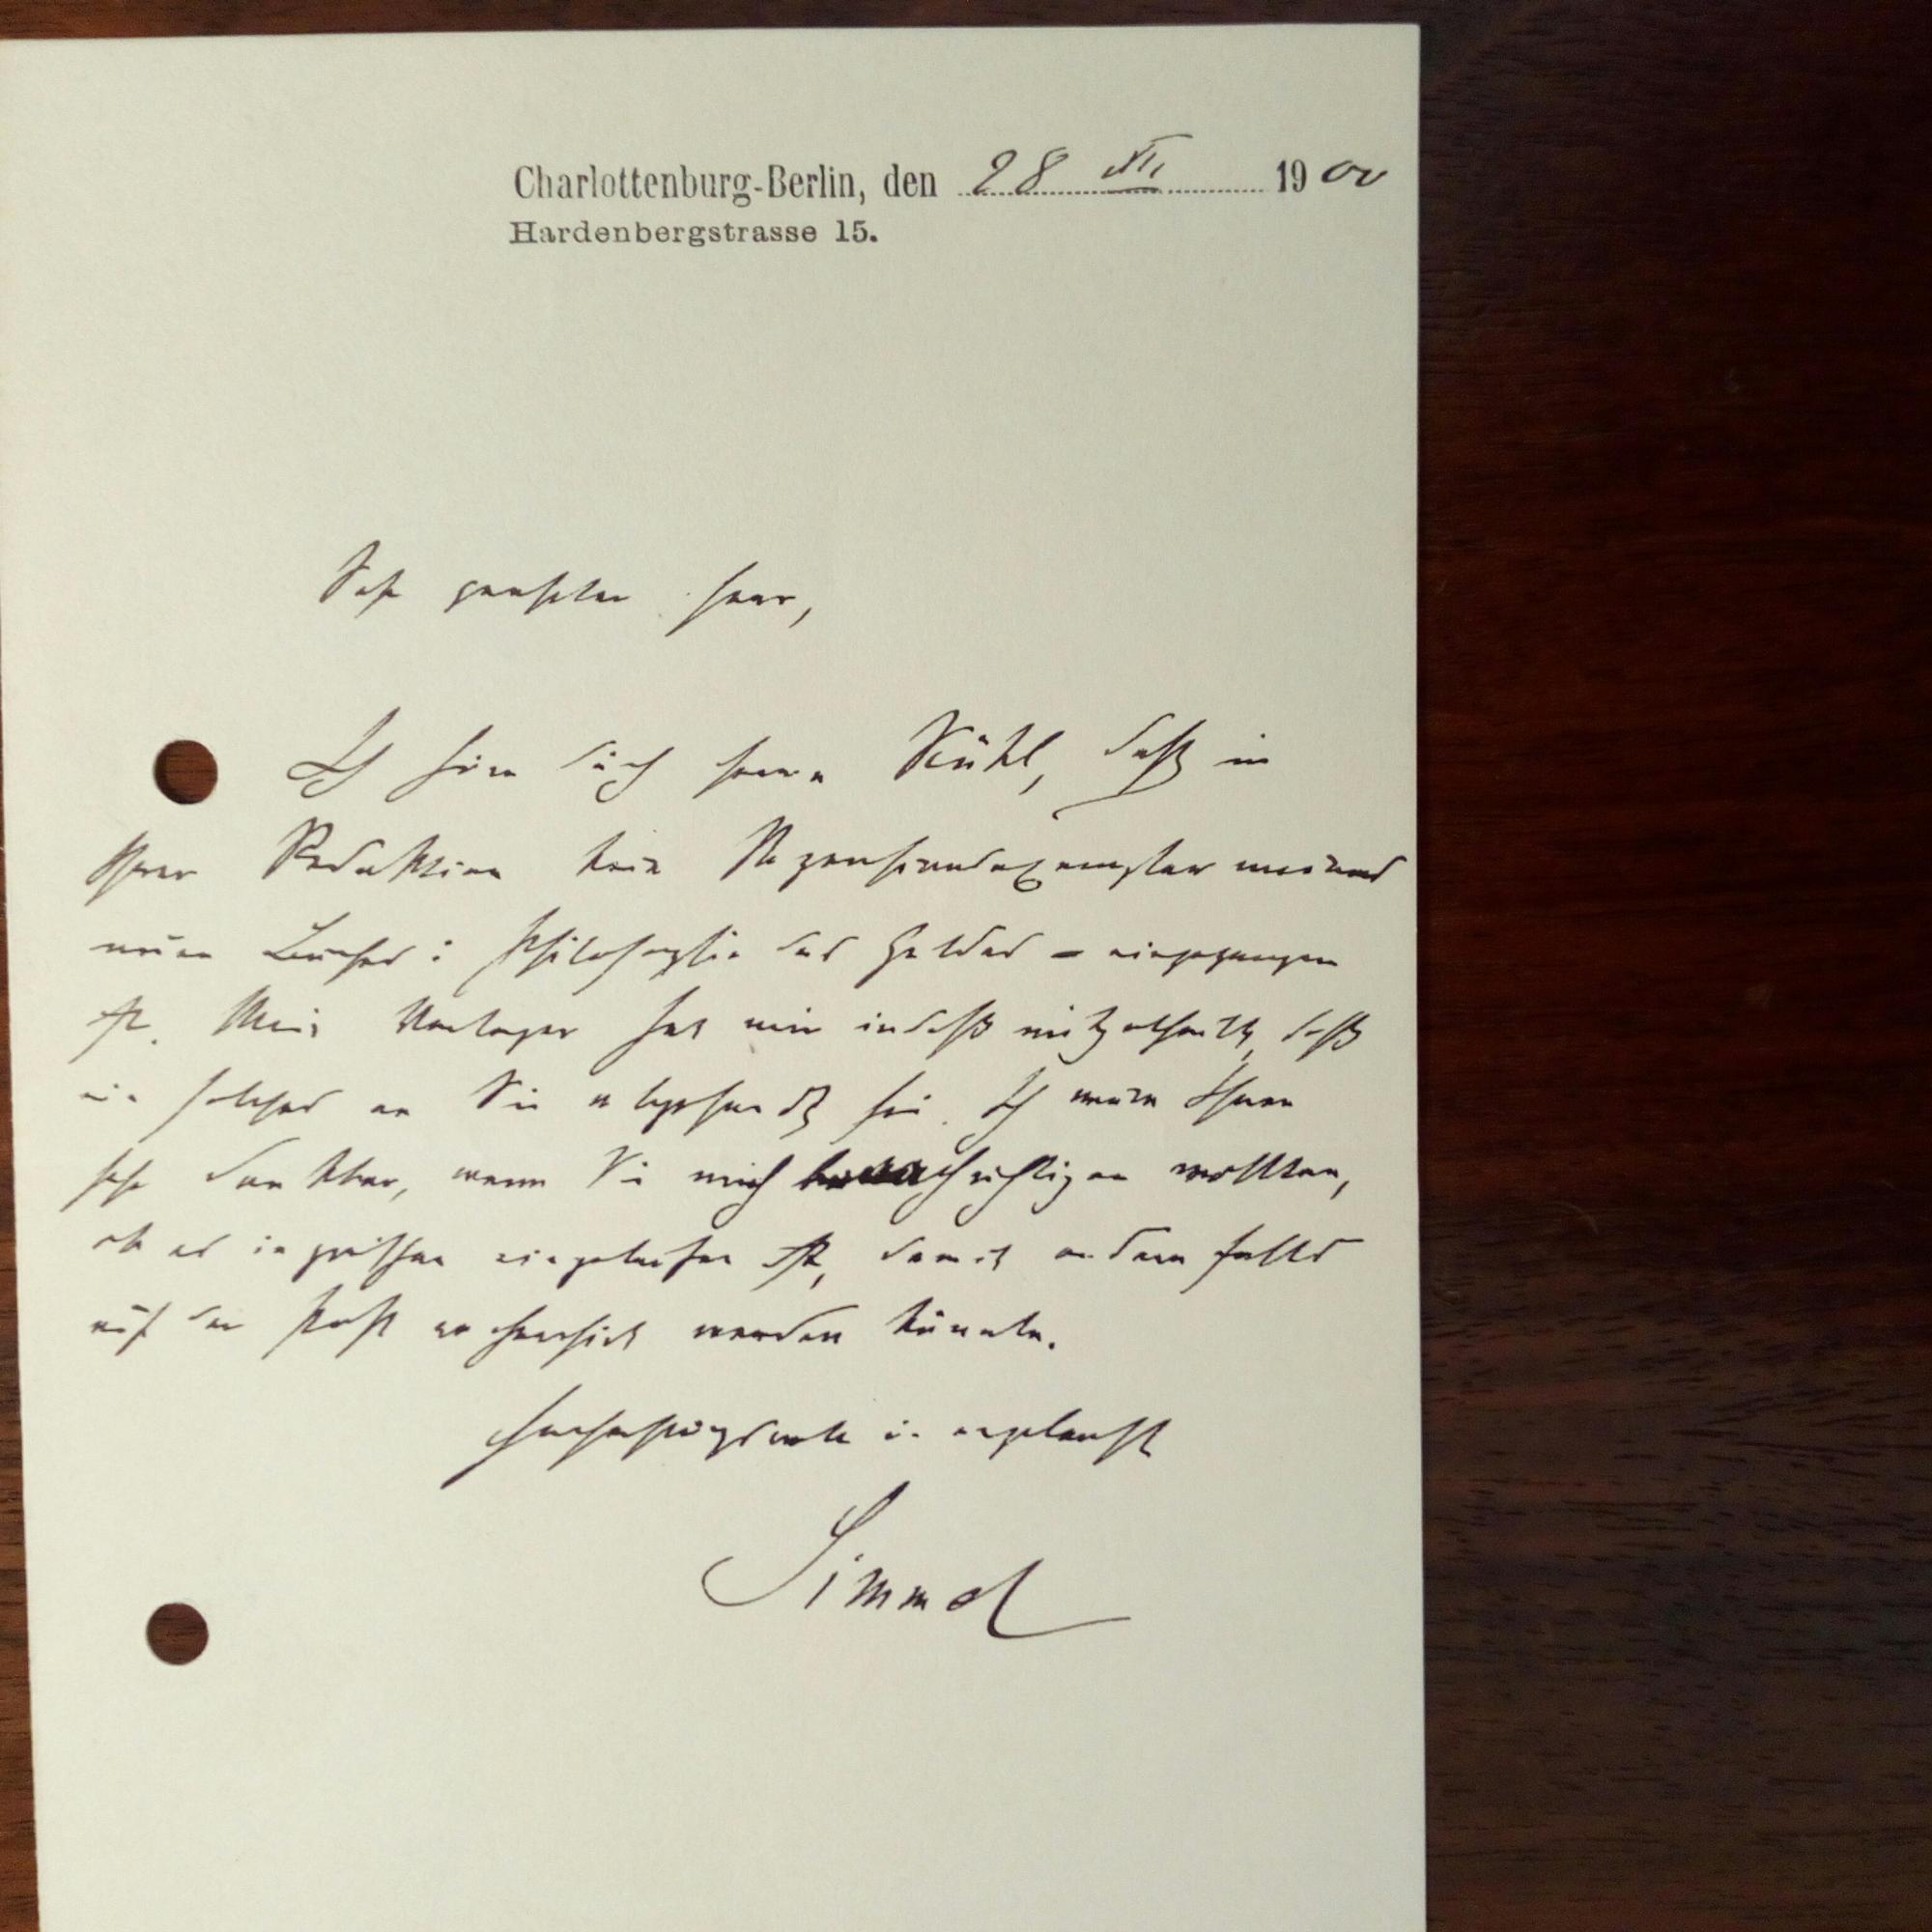 Charlottenburg-Berlin, den 28 XII 1900
Hardenbergstrasse 15.
Sehr geehrter Herr,
Ich höre durch Herrn Kühl, daß in
Ihrer Redaktion kein Rezensionsexemplar meines
neuen Buches: Philosophie des Geldes – eingegangen
ist. Mein Verleger hat mir indeß mitgetheilt, daß
ein solches an Sie abgesandt sei. Ich wäre Ihnen
sehr dankbar, wenn Sie mich benachrichtigen wollten,
ob es inzwischen eingelaufen ist, damit andernfalls
auf der Post recherchirt werden könnte.
Hochachtungsvoll u. ergebenst
Simmel